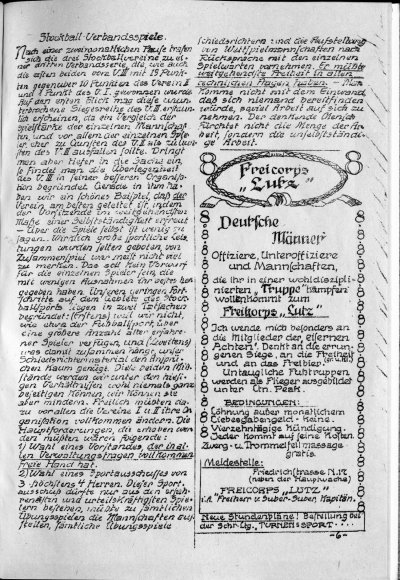 Stockball-Verbandsspiele.
Nach einer zweimonatlichen Pause trafen
sich die drei Stockballvereine zu ei-
ner dritten Verbandsserie, die, wie auch
die ersten beiden von V.III mit 15 Punk-
ten gegenüber 10 Punkten des Verein I
und 1 Punkt des V.II gewonnen wurde.
Auf den ersten Blick mag diese
Siegesreihe des V.III erstaun-
lich erscheinen, da ein Vergleich der
Spielstärke der einzelnen Mannschaf-
ten und vor allem der einzelnen Spie-
ler eher zu Gunsten des V.I
des V.III ausfallen sollte. Dringt
man aber tiefer in die Sache ein
so findet man die Überlegenheit
des V.III in seiner besseren Organisa-
tion begründet. Gerade in ihm ha-
ben wir ein schönes Beispiel, daß der
Verein am besten geleitet ist, indem
der Vorsitzende im weitgehendsten
Maße einer Selbständigkeit erfreut.
- Über die Spiele selbst ist wenig zu
sagen. Wirklich große sportliche Leis-
tungen wurden selten geboten, von
Zusammenspiel war meist nicht viel
zu merken. Das soll kein Vorwurf
für die einzelnen Spieler sein, die
mit wenigen Ausnahmen ihr bestes her-
gegeben haben. Unseren geringen Fort-
schritte auf dem Gebiete des Stock-
ballsports liegen in zwei Tatsachen
begründet: (Erstens) weil wir nicht,
wie etwa der Fußballsport über
eine größere Anzahl alter erfahre-
ner Spieler verfügen, und (Zweitens)
was damit zusammen hängt, viele
Schiedsrichtermaterial den Ansprü-
chen kaum genügt. Diese beiden Miß-
stände werden wir unter den hiesi-
gen Verhältnissen wohl niemals ganz
beseitigen können, wir können sie
aber mindern. Freilich müssten da-
zu vor allem die Vereine I u. II ihre Or-
ganisation vollkommen ändern. Die
Hauptforderungen, die erhoben wer-
den müßten wären folgende:
1) Wahl eines Vorstandes der in al-
len Verwaltungsfragen vollkommen
freie Hand hat.
2) Wahl eines Sportausschusses von
3 höchstens 4 Herren. Dieser Sport-
ausschuß dürfte nur aus den erfah-
rensten und urteilskräftigsten Spie-
lern bestehen, müßte zu sämtlichen
Übungsspielen die Mannschaften auf-
stellen, sämtliche Übungsspiele
schiedsrichtern und die Aufstellung
von Wettspielmannschaften nach
Rücksprache mit den einzelnen
Spielwarten vornehmen. Er müßte
weitgehendste Freiheit in allen
technischen Fragen haben. - Man
komme nicht mit dem Einwand
daß sich niemand bereitfinden
würde, soviel Arbeit auf sich zu
nehmen. Der denkende Mensch
fürchtet nicht die Menge der Ar-
beit, sondern die unselbststän-
dige Arbeit.
Freicorps
„Lutz"
Deutsche
Männer
Offiziere, Unteroffiziere
und Mannschaften,
die Ihr in einer wohldiszipli-
nierten „Truppe" kämpfen
wollt, kommt zum
Freikorps „Lutz"
Ich wende mich besonders an
die Mitglieder der „eisernen
Achten". Denkt an die errun-
genen Siege, an die Freiheit
und an das Freibier.
Untaugliche Fußtruppen
werden als Flieger ausgebildet
unter Ltn. Pech.
BEDINGUNGEN:
Löhnung außer monatlichem
Liebesgabengeld - keine.
Vierzehntägige Kündigung.
Jeder kommt auf seine Kosten
Zwerg- u. Trommelfellmassage
gratis.
Meldestelle:
Friedrichstrasse N.17
(neben der Hauptwache)
FREICORPS „LUTZ"
i.A. Freiherr v. Suber-Suber, Kapitän.
Neue Stundenpläne! Bestellung bei
der Schr.Ltg. TURNEN SPORT
-6-